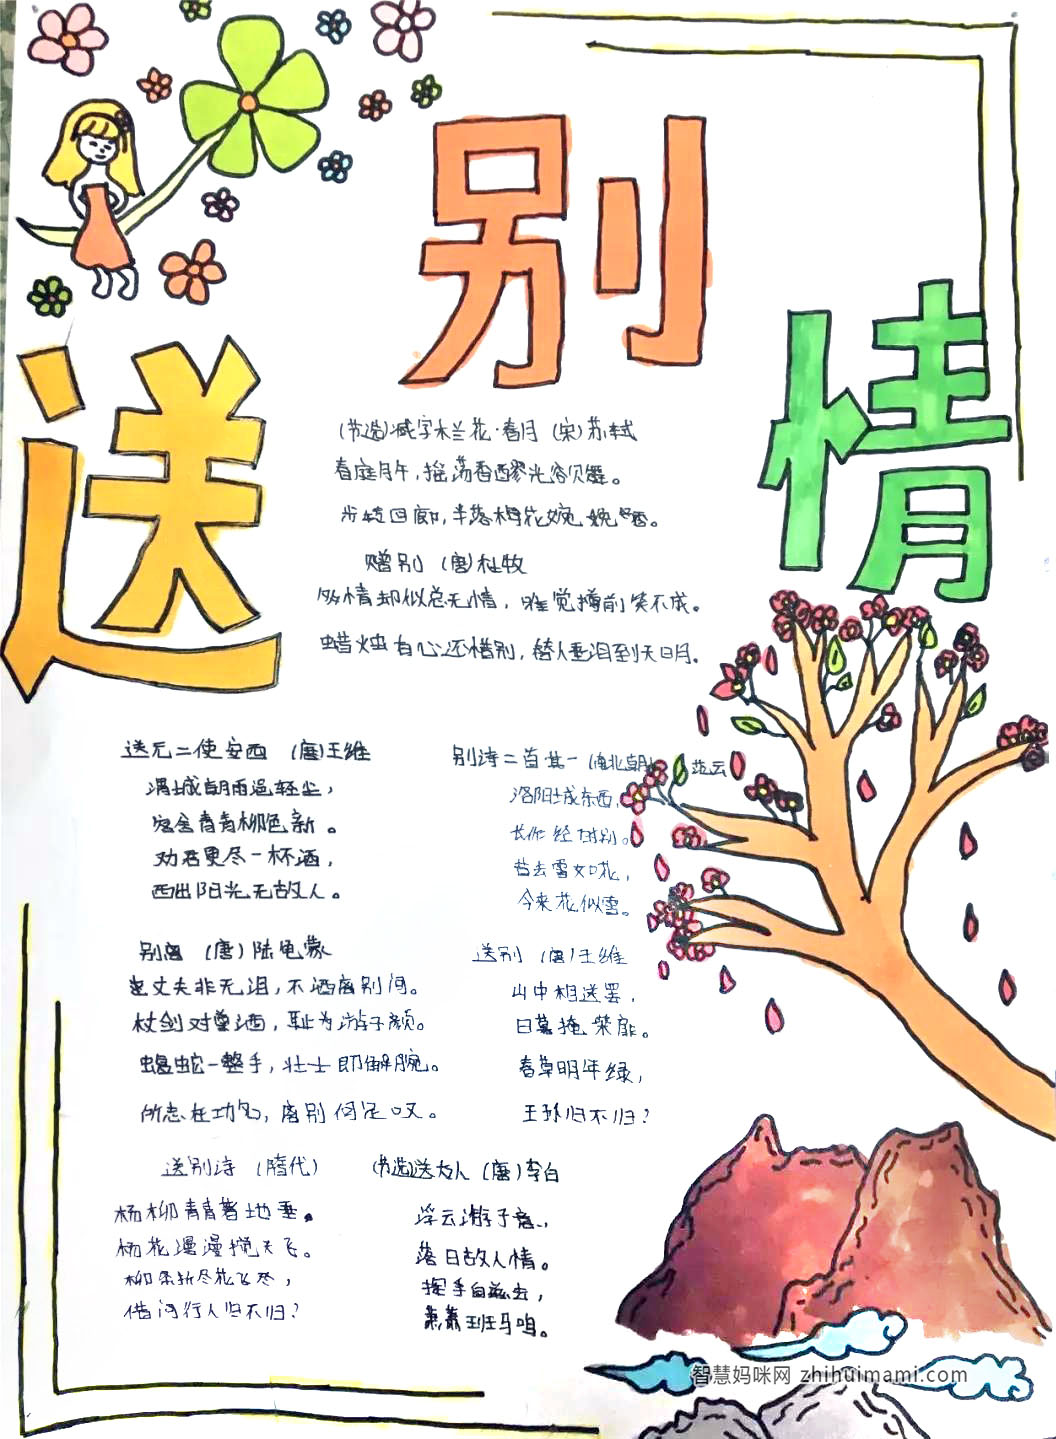 送别情
(节选)减字木兰花·春月 (宋)苏轼
春庭月午,摇荡香醪光欲舞。
步转回廊,半落梅花婉娩香。
赠别 (唐)杜牧
多情却似总无情,唯觉樽前笑不成。
蜡烛有心还惜别,替人垂泪到天明。
送元二使安西 (唐)王维
渭城朝雨浥轻尘,
客舍青青柳色新。
劝君更尽一杯酒,
西出阳光无故人。
别诗二首其一 (南北朝) 范云
洛阳城东西,
长作经时别。
昔去雪如花,
今来花似雪。
别离 (唐)陆龟蒙
丈夫非无泪,不洒离别间。
杖剑对尊酒,耻为游子颜。
蝮蛇一螫手,壮士即解腕。
所志在功名,离别何足叹。
送别 (唐)王维
山中相送罢,
日暮掩柴扉。
春草明年绿,
王孙归不归?
送别诗 (隋代)
杨柳青青著地垂。
杨花漫漫搅天飞。
柳条折尽花飞尽,
借问行人归不归?
(节选)送友人 (唐)李白
浮云游子意,
落日故人情。
挥手自兹去,
萧萧班马鸣。
智慧妈咪网 zhihuimami.com